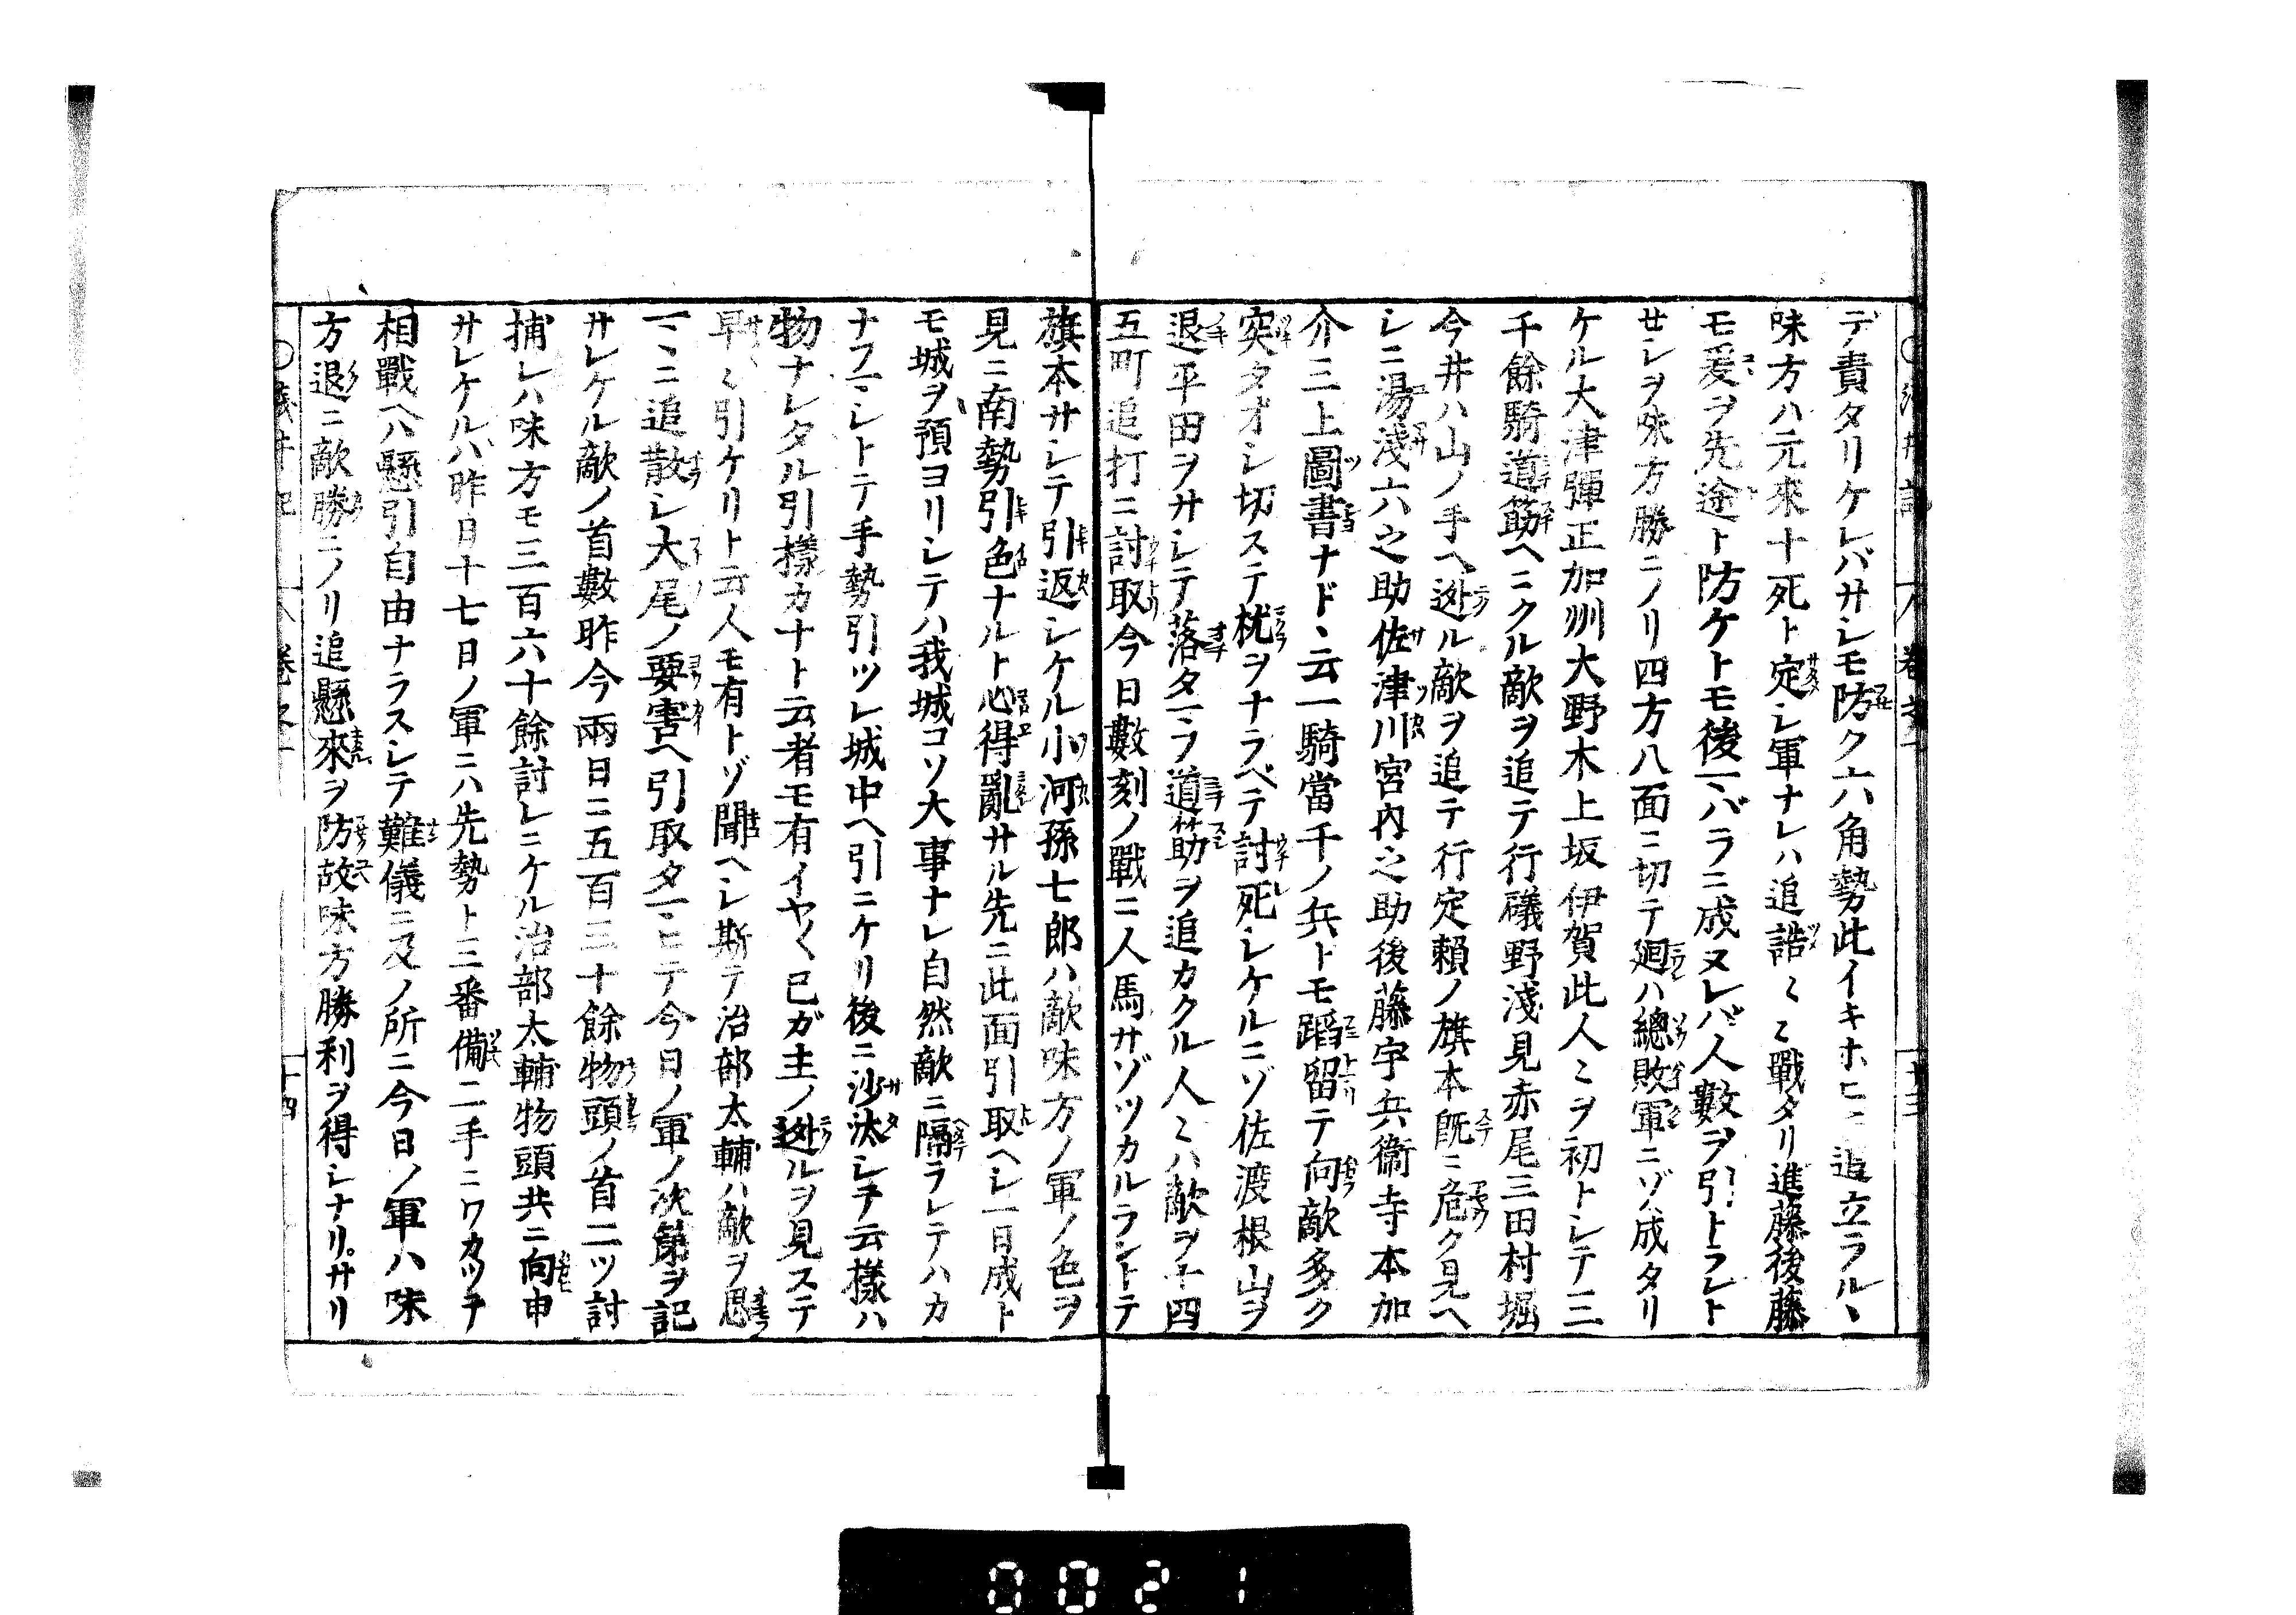 デ責タリケレバサシモ防ク六角勢此イキホヒニ追立ラルヽ
味方ハ元來十死ト定シ軍ナレハ追詰〱〻戰タリ進藤後藤
モ爰ヲ先途ト防ケトモ後一バラニ成ヌレバ人數ヲ引トラレト
せシヲ味方勝ニノリ四方八面ニ切テ廻ハ總敗軍ニゾ成タリ
ケル大津彈正加洲大野木上坂伊賀此人〻ヲ初トシテ三
千餘騎道筋ヘニクル敵ヲ追テ行礒野淺見赤尾三田村堀
今井ハ山ノ手ヘ迯ル敵ヲ追テ行定賴ノ旗本既ニ危ク見ヘ
シニ湯淺六之助佐津川宮内之助後藤宇兵衞寺本加
介三上圖書ナドヽ云一騎當千ノ兵トモ蹈留テ向敵多ク
突タオシ切ステ枕ヲナラベテ討死シケルニゾ佐渡根山ヲ
退平田ヲサシテ落タマフ道筋ヲ追カクル人〻ハ敵ヲ十四
五町追打ニ討取今日數刻ノ戰ニ人馬サゾツカルラントテ
旗本サシテ引返シケル小河孫七郎ハ敵味方ノ軍ノ色ヲ
見ニ南勢引色ナルト心得亂サル先ニ此面引取ヘシ一日成ト
モ城ヲ預ヨリシテハ我城コソ大事ナレ自然敵ニ隔ラレテハカ
ナフマシトテ手勢引ツレ城中ヘ引ニケリ後ニ沙汰シテ云樣ハ
物ナレタル引樣カナト云者モ有イヤ〱已ガ主ノ迯ルヲ見ステ
早〻引ケリト云人モ有トゾ聞ヘシ斯テ治部太輔ハ敵ヲ思
マヽニ追散シ大尾ノ要害ヘ引取タマヒテ今日ノ軍ノ次第ヲ記
サレケル敵ノ首數昨今兩日ニ五百三十餘物頭ノ首二ツ討
捕レハ味方モ三百六十餘討レニケル治部太輔物頭共ニ向申
サレケルハ昨日十七日ノ軍ニハ先勢ト三番備二手ニワカツテ
相戰ヘハ懸引自由ナラスシテ難儀ニ及ノ所ニ今日ノ軍ハ味
方退ニ敵勝ニノリ追懸來ヲ防故味方勝利ヲ得シナリ。サリ
0021